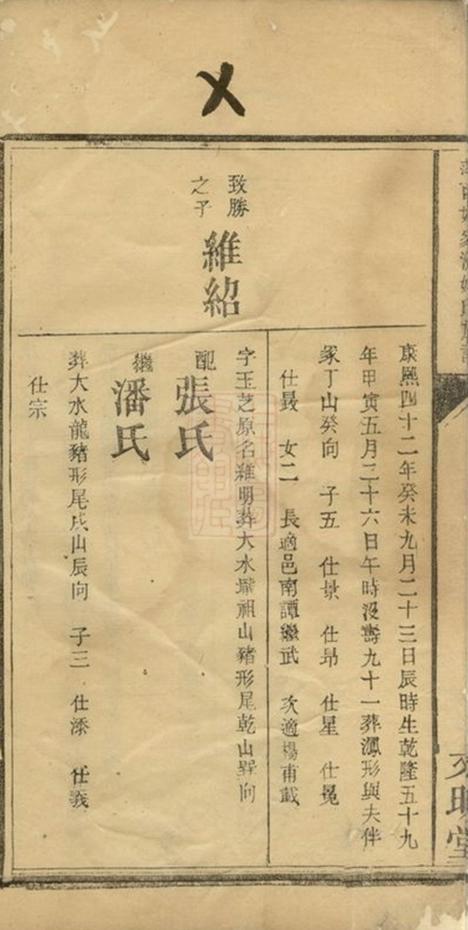 康熙四十二年癸未九月二十三日辰時生乾隆五十九
年甲寅五月二十六日午時沒壽九十一葬鳳形與夫伴
冢丁山癸向 子五 仕景 仕昻 仕星 仕冕
仕最 女二 長適邑南譚繼武 次適楊甫載
致勝
之子
維紹
字玉芝原名維明葬大水壠祖山豬形尾乾山巽向
配
張氏
繼
潘氏
葬大水龍豬形尾戌山辰向 子三 仕添 仕義
仕宗
文明堂